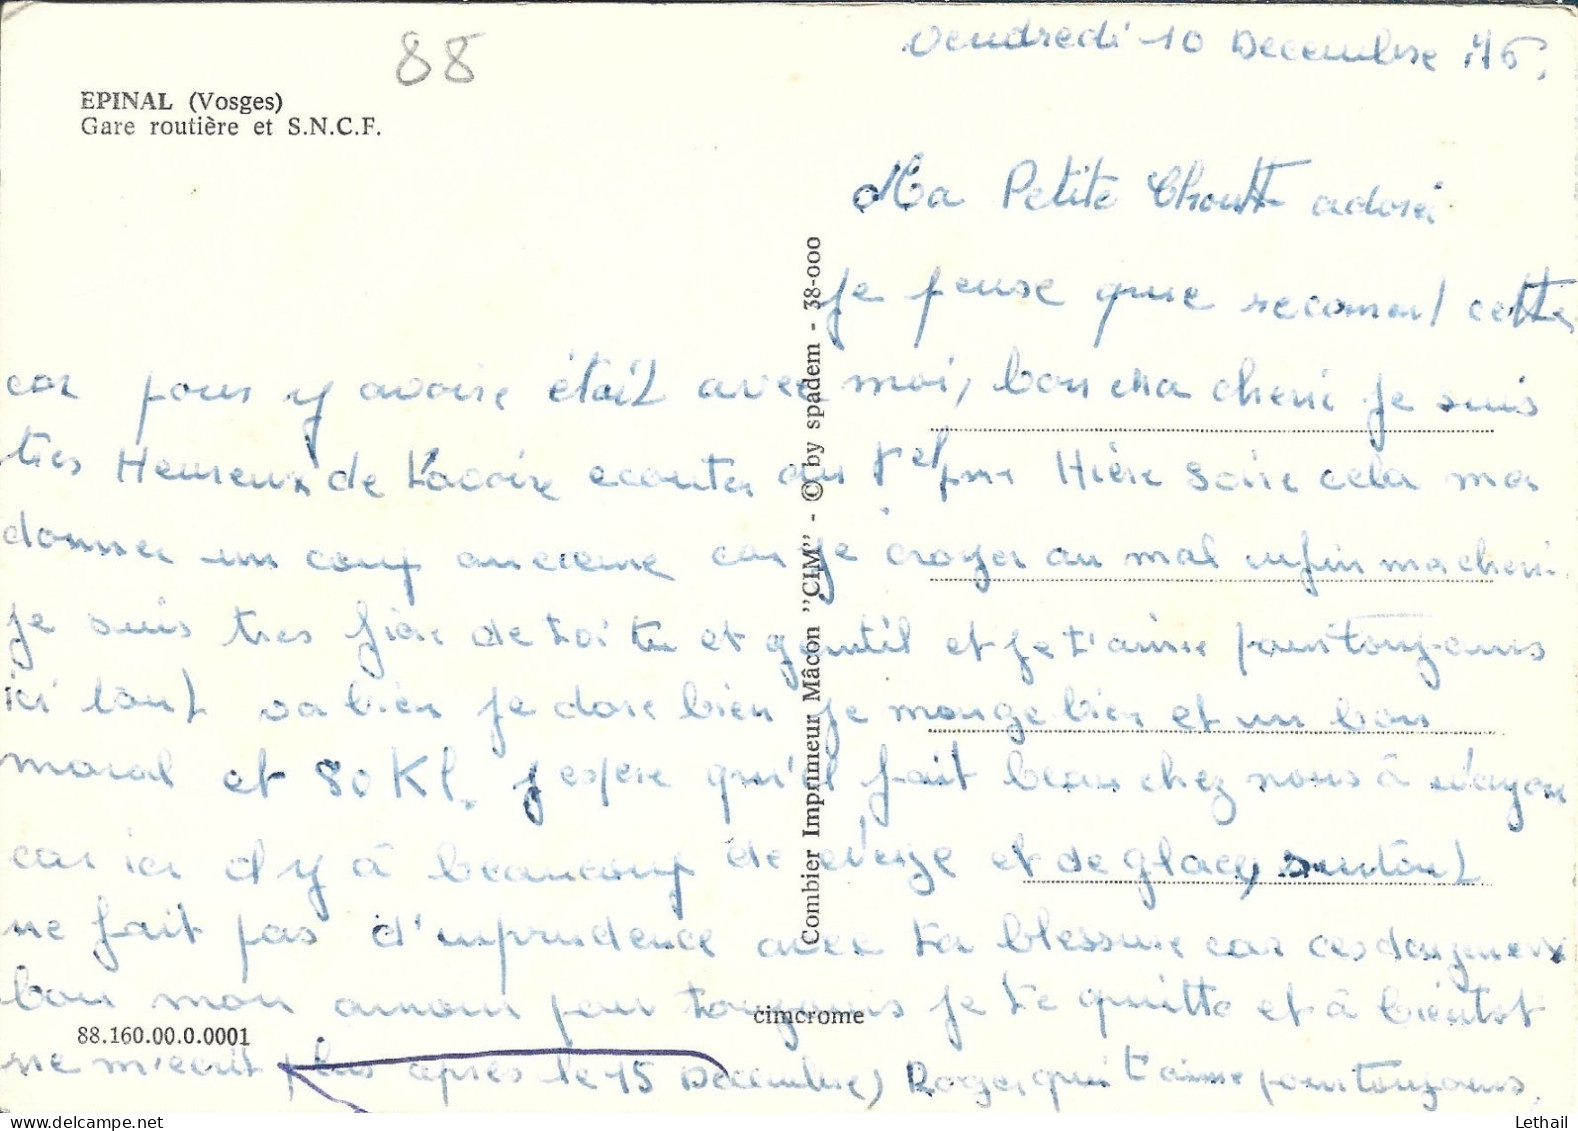 88
EPINAL (Vosges)
Gare routière et S.N.C.F.
Vendredi 10 Decembre 76.
Ma Petite Choutt adoré
Je pense que recomer/ cette
car pour y avoire étáit avec moi, bon ma cheri je suis
tres Heureux de t'avoire ecouter au Tel par Hière soire cela ma
donner un coup car je croyer au mal enfin ma cheri
je suis tres fière de toi tu et gentil et je t'aime pour toujours
ici tout va bien je dore bien je mange bien et un bon
moral et 80 Kl. j'espere qu'il fait beau chez nous à
car ici d'y à beaucoup de neige et de glace, surtout
ne fait pas d'inprudence avec ta blessure car ces dangereux
bon mon amour pour toujours je te quitte et à bientot
ne m'ecrit plus apres le 15 Decembre, Roger qui t'aime pour toujours.
Combier Imprimeur Mâcon "CIM" - © by spadem - 38-000
cimcrome
88.160.00.0.0001
Lethail